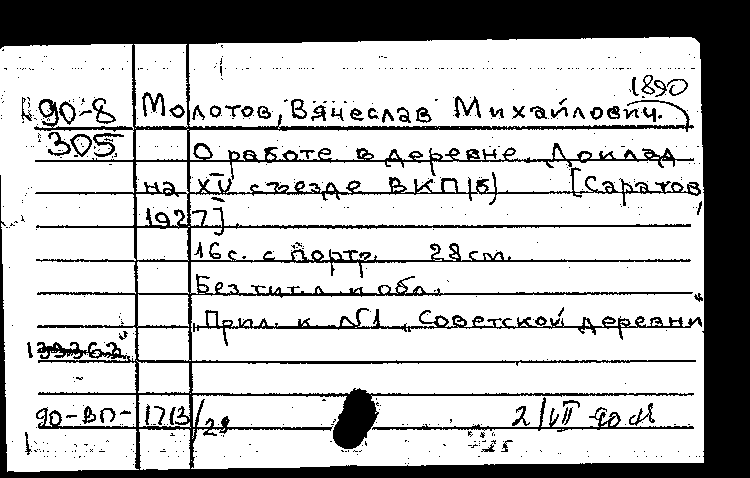 1890
90-8 Молотов, Вячеслав Михайлович.
305 О работе в деревне. Доклад
на XV съезде ВКП(б) [Саратов,
1927].
16 с. с портр. 28 см.
Без тит. л. и обл.
"Прил. к №1 "Советской деревни"
90-ВП-1713/29 2/VII-90